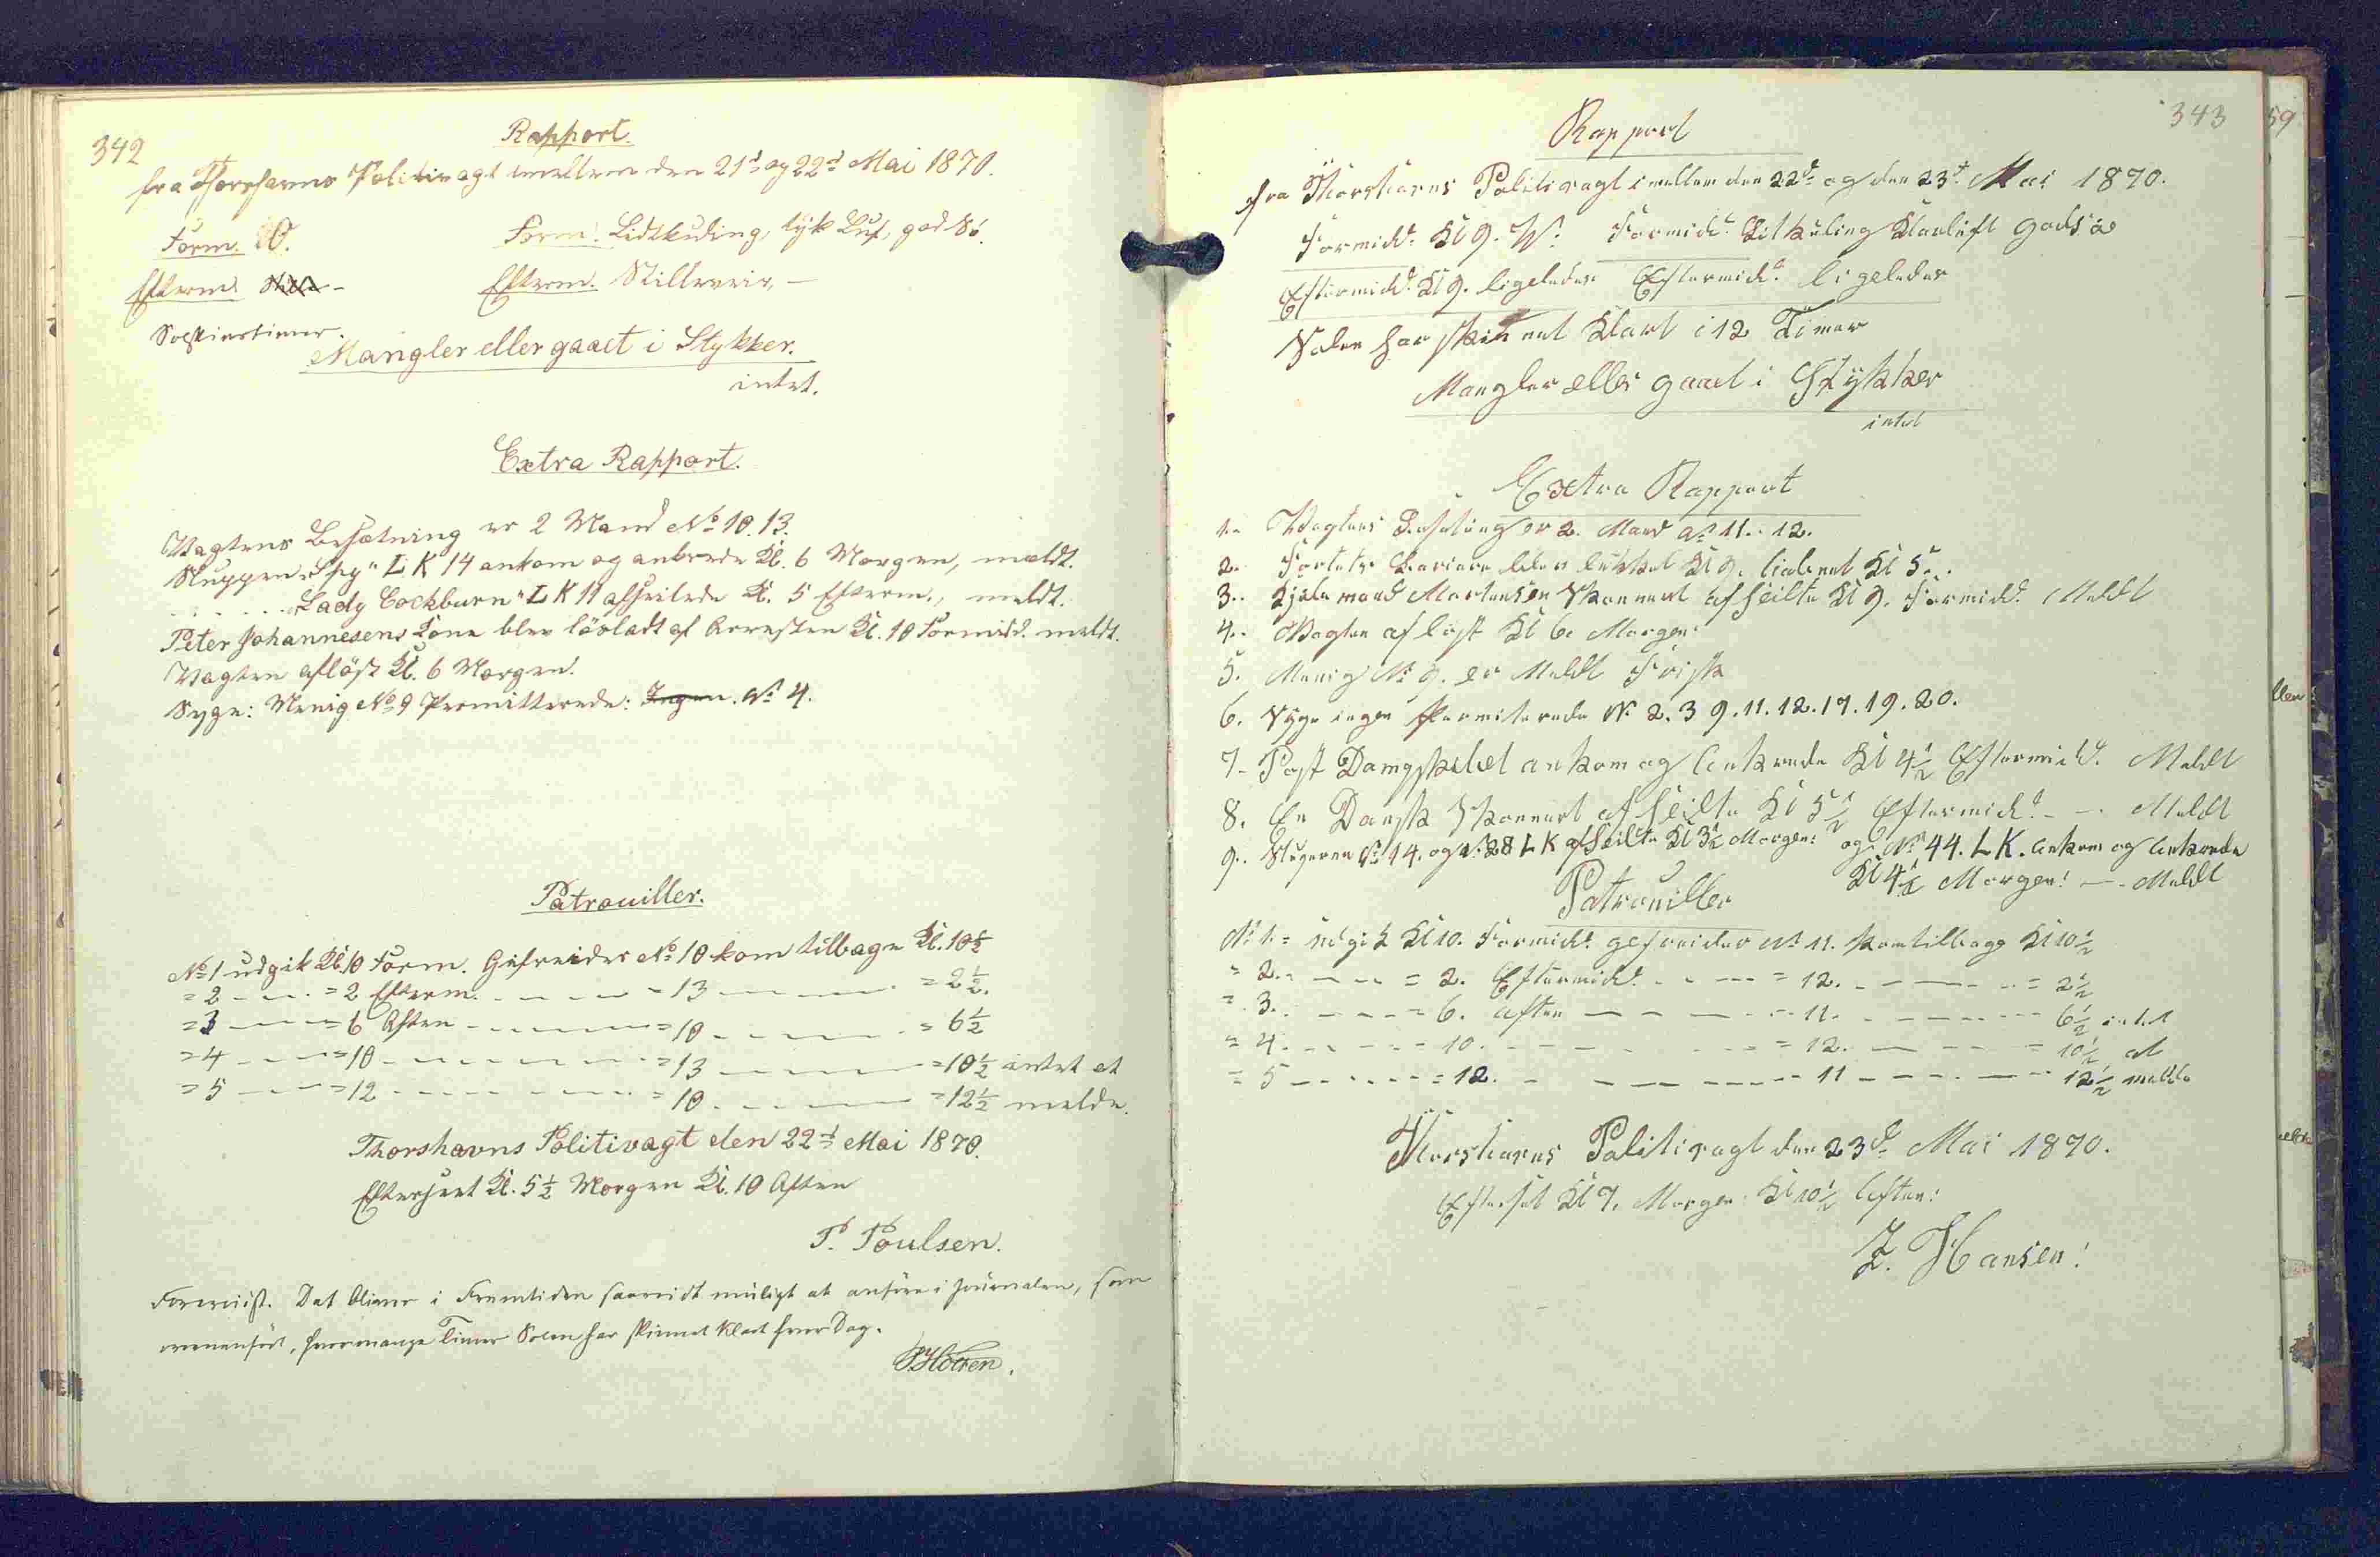 342
Rapport.
fra Thorshavns Politivagt imellem den 21d og 22d Mai 1870.
Form. O. Form. Lidtkuling, tyk Luft, god Sö.
Efterm. Efterm. Stilleveir, —
Solskinstimer.
Mangler eller gaaet i Stykker.
intet.
Extra Rapport.
Vagtens Besætning er 2 Mand No 10. 13.
Sluppen "Spy" LK 14 ankom og ankrede Kl. 6 Morgen, meldt.
"Lady Cockburn" LK 11 afseilede Kl. 5 Efterm., meldt.
Peter Johannesens Kone blev lösladt af Arresten Kl. 10 Formidd. meldt.
Vagten aflöst Kl. 6 Morgen.
Syge: Menig No 9 Permitterede: Ingen. No 4.
Patrouiller.
No 1 udgik Kl. 10 Form. Gefreider No 10 kom tilbage Kl. 10½
= 2 — = 2 Efterm. — = 13 — = 2½.
= 3 — = 6 Aften — = 10 — = 6½
= 4 — = 10 — = 13 — = 10½ intet at
= 5 — = 12 — = 10 — = 12½ melde.
Thorshavns Politivagt den 22d Mai 1870.
Efterseet Kl. 5½ Morgen Kl. 10 Aften
P. Poulsen.
Forevist. Det bliver i Fremtiden saavidt muligt at anföre i Journalen, som
ovenanfört, hvormange Timer Solen har skinnet klart hver Dag.
343
Rapport
fra Thorshavns Politivagt imellem den 22d og den 23d Mai 1870.
Formidd. Kl 9. W. Formidd. Litkuling Klarluft godsö
Eftermidd. Kl 9. ligeledes Eftermidd. ligeledes
Solen har skinnet Klart i 12 Timer
Mangler eller gaaet i Stykker
intet
Extra Rapport
1. Vagtens Besetning er 2. Mand No 11. 12.
2. Fortets Bariere blev lukket Kl 9. aabnet Kl 5.
3. Mortensen Skonnert afseilte Kl 9. Formidd. Meldt
4. Vagten aflöst Kl 6. Morgen.
5. Menig No 9. er Meldt Frisk
6. Syge ingen Permiterede No 2. 3 9. 11. 12. 17. 19. 20.
7. Post Dampskibet ankom og Ankrede Kl 4½ Eftermidd. Meldt
8. En Dansk Skonnert afseilte Kl 5½ Eftermidd. — Meldt
9. No 14. og No 28 LK afseilte Kl 3½ Morgen: og No 44. LK. Ankom og Ankrede
Kl 4½ Morgen! — Meldt
Patrouiller
No 1. = udgik Kl 10. Formidd. gefreider No 11. kom tilbage Kl 10½
= 2. — = 2. Eftermidd. — = 12. — = 2½
= 3. — = 6. aften — 11. — 6½ intet
= 4. — = 10. — = 12. — = 10½ at
= 5 — = 12. — 11 — 12½ melde
Thorshavns Politivagt den 23d Mai 1870.
Efterset Kl 7. Morgen Kl 10½ Aften:
J. Hansen!
59